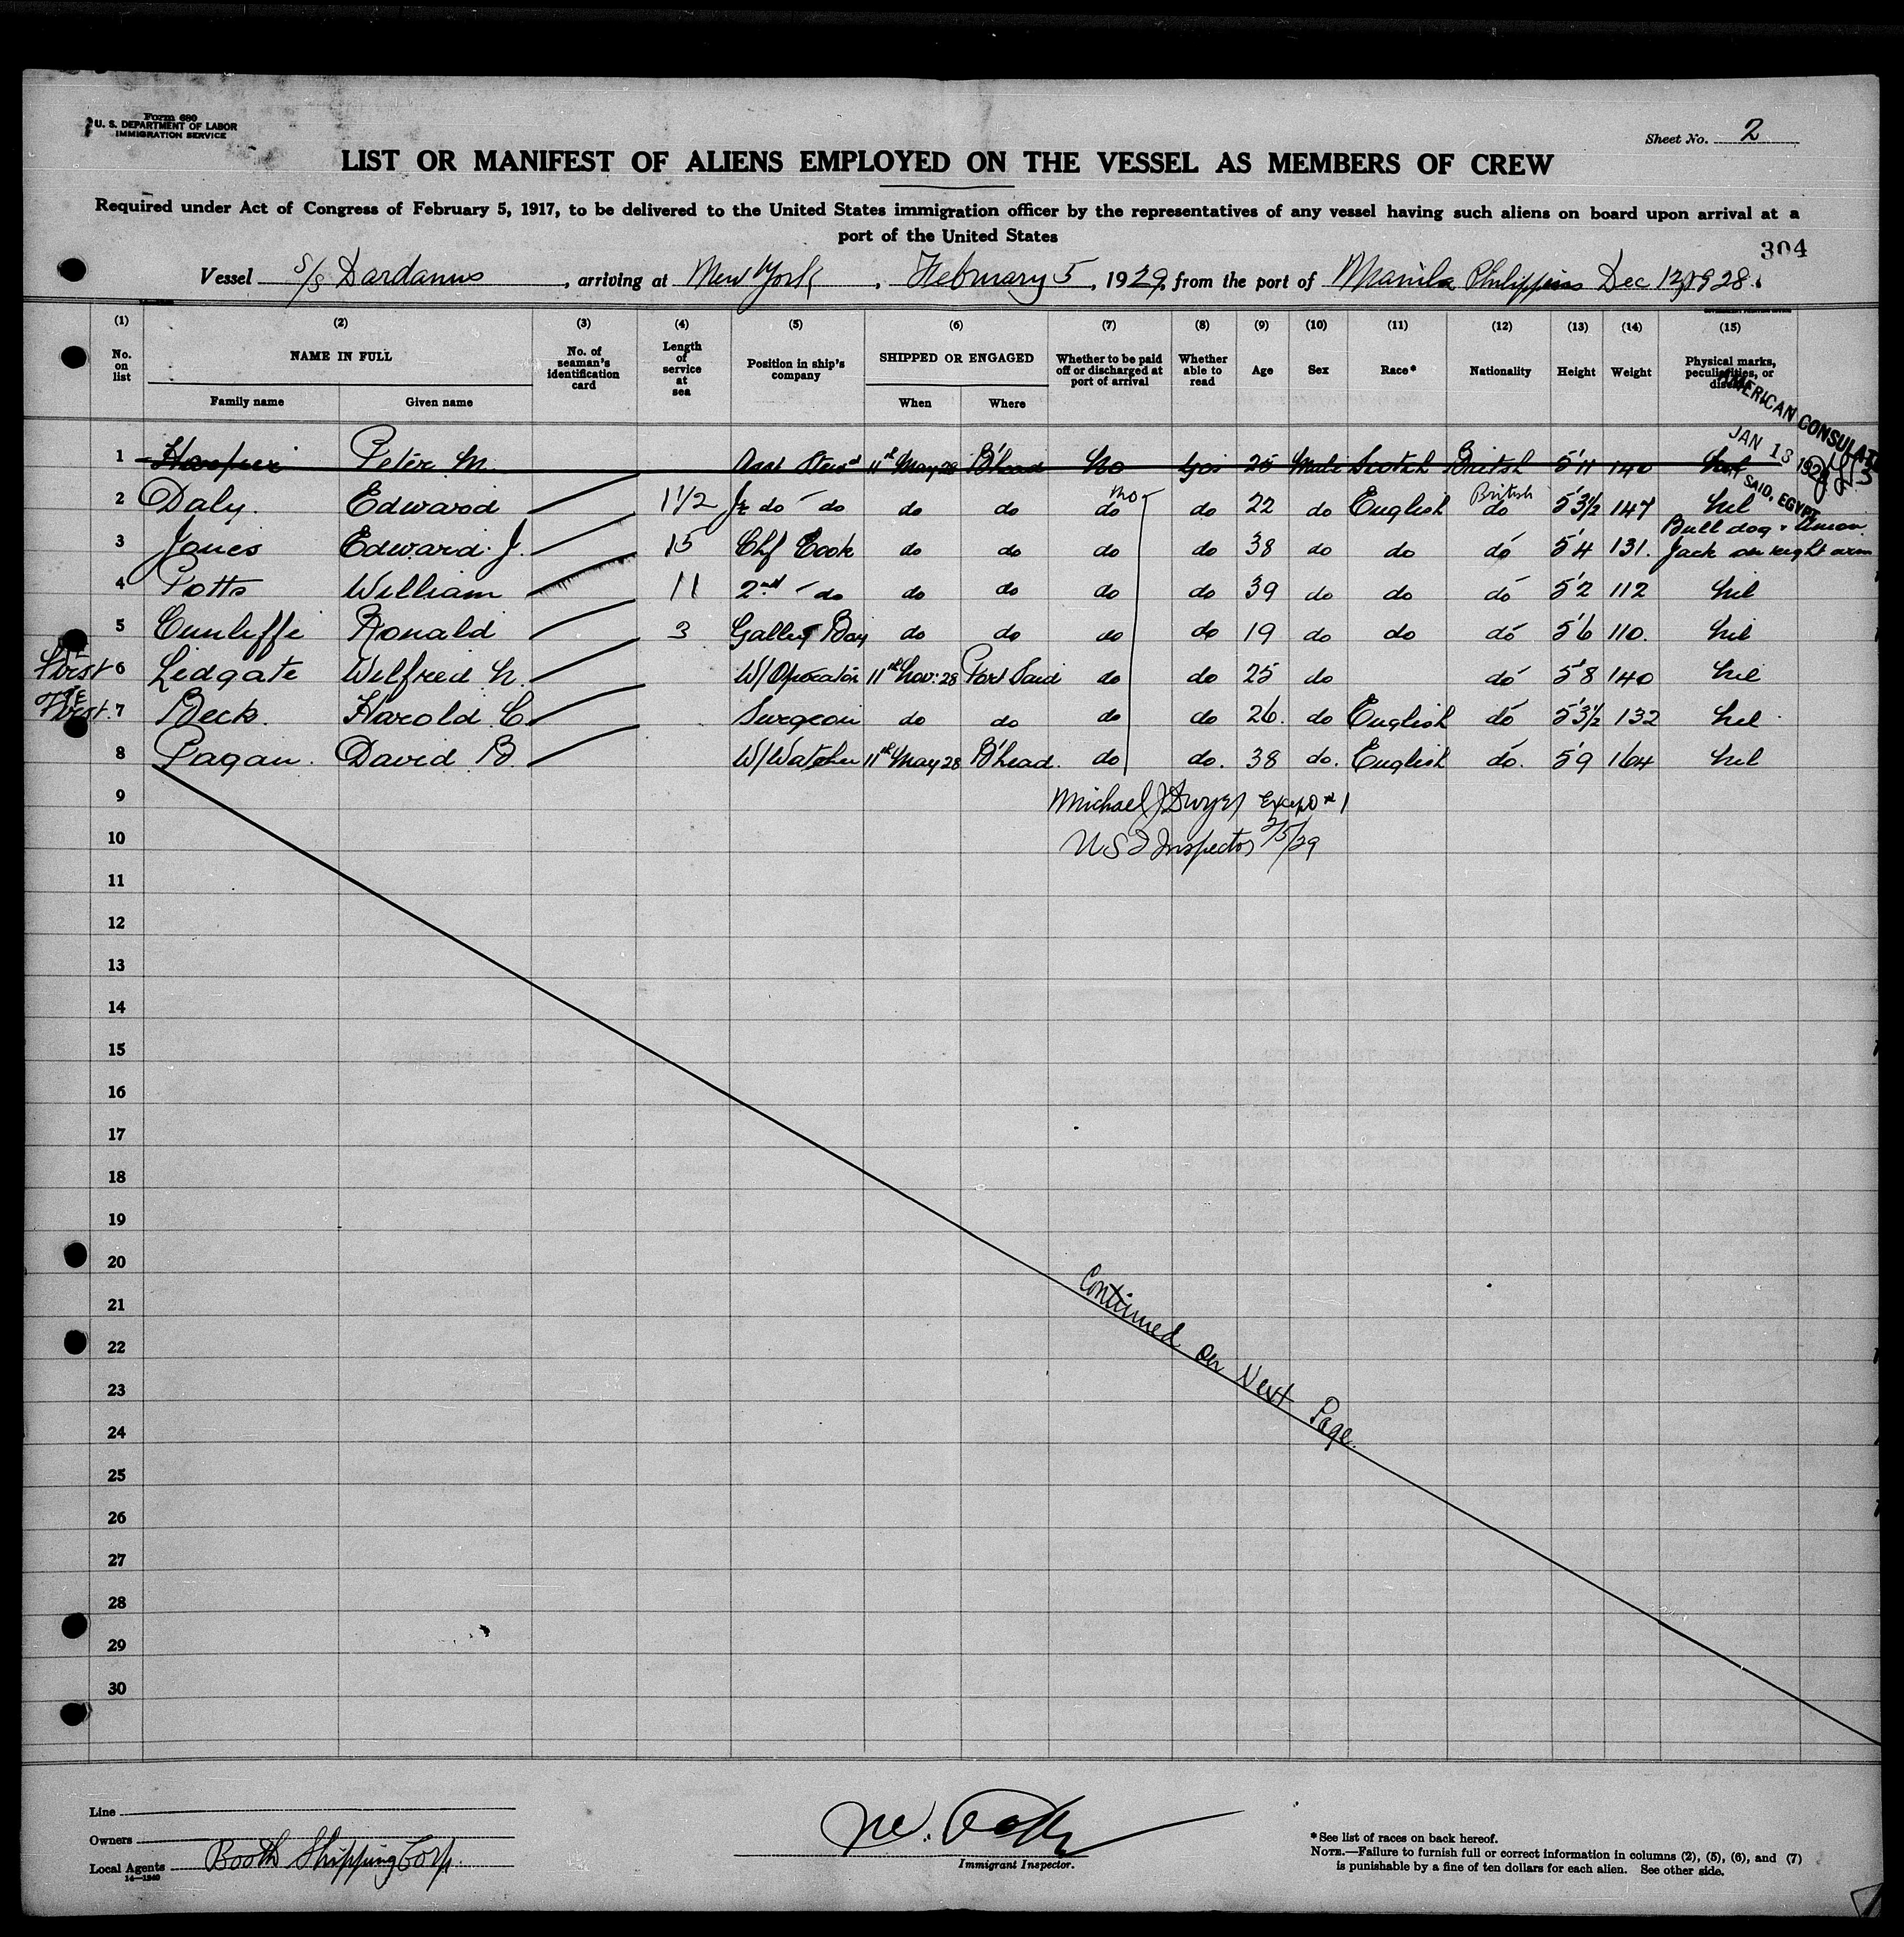 Form 680
U. S. DEPARTMENT OF LABOR
IMMIGRATION SERVICE
Sheet No. 2
LIST OR MANIFEST OF ALIENS EMPLOYED ON THE VESSEL AS MEMBERS OF CREW
Required under Act of Congress of February 5, 1917, to be delivered to the United States immigration officer by the representatives of any vessel having such aliens on board upon arrival at a
port of the United States
304
Vessel S/S Dardanus, arriving at New York, February 5, 1929, from the port of Manila Philippins Dec 12, 1928.
(1) (2) (3) (4) (5) (6) (7) (8) (9) (10) (11) (12) (13) (14) (15)
No. on list NAME IN FULL No. of seaman's identification card Length of service at sea Position in ship's company SHIPPED OR ENGAGED Whether to be paid off or discharged at port of arrival Whether able to read Age Sex Race* Nationality Height Weight Physical marks, peculiarities, or disease
Family name Given name When Where
AMERICAN CONSULATE
JAN 13 1929
PORT SAID, EGYPT
1 Peter M. Asst Stew'd 11th May 28 B'head No Yes 25 Male Scotch British 5'11 140
2 Daly. Edward 1 1/2 Jr do - do do do do No do 22 do English do British 5'3 1/2 147 Nil
3 Jones Edward J. 15 Chf Cook do do do do 38 do do do 5'4 131. Bull dog & Union Jack on right arm
4 Potts William 11 2nd - do do do do do 39 do do do 5'2 112 Nil
5 Cunliffe Ronald 3 Galley Boy do do do do 19 do do do 5'6 110. Nil
First 6 Lidgate Wilfred N. W/Operator 11th Nov: 28 Port Said do do 25 do do 5'8 140 Nil
First. 7 Beck. Harold C. Surgeon do do do do 26. do English do 5'3 1/2 132 Nil
8 Pagan. David B. W/Watcher 11th May 28 B'head. do do. 38 do. English do. 5'9 164 Nil
9 Michael J Dwyer Except # 1
10 U S I Inspector 2/5/29
11
12
13
14
15
16
17
18
19
20
21
22
23
24
25
26
27
28
29
30
Continued on Next Page.
Line
Owners
Local Agents Booth Shipping Corp.
14—1240
Immigrant Inspector.
*See list of races on back hereof.
NOTE.—Failure to furnish full or correct information in columns (2), (5), (6), and (7)
is punishable by a fine of ten dollars for each alien. See other side.